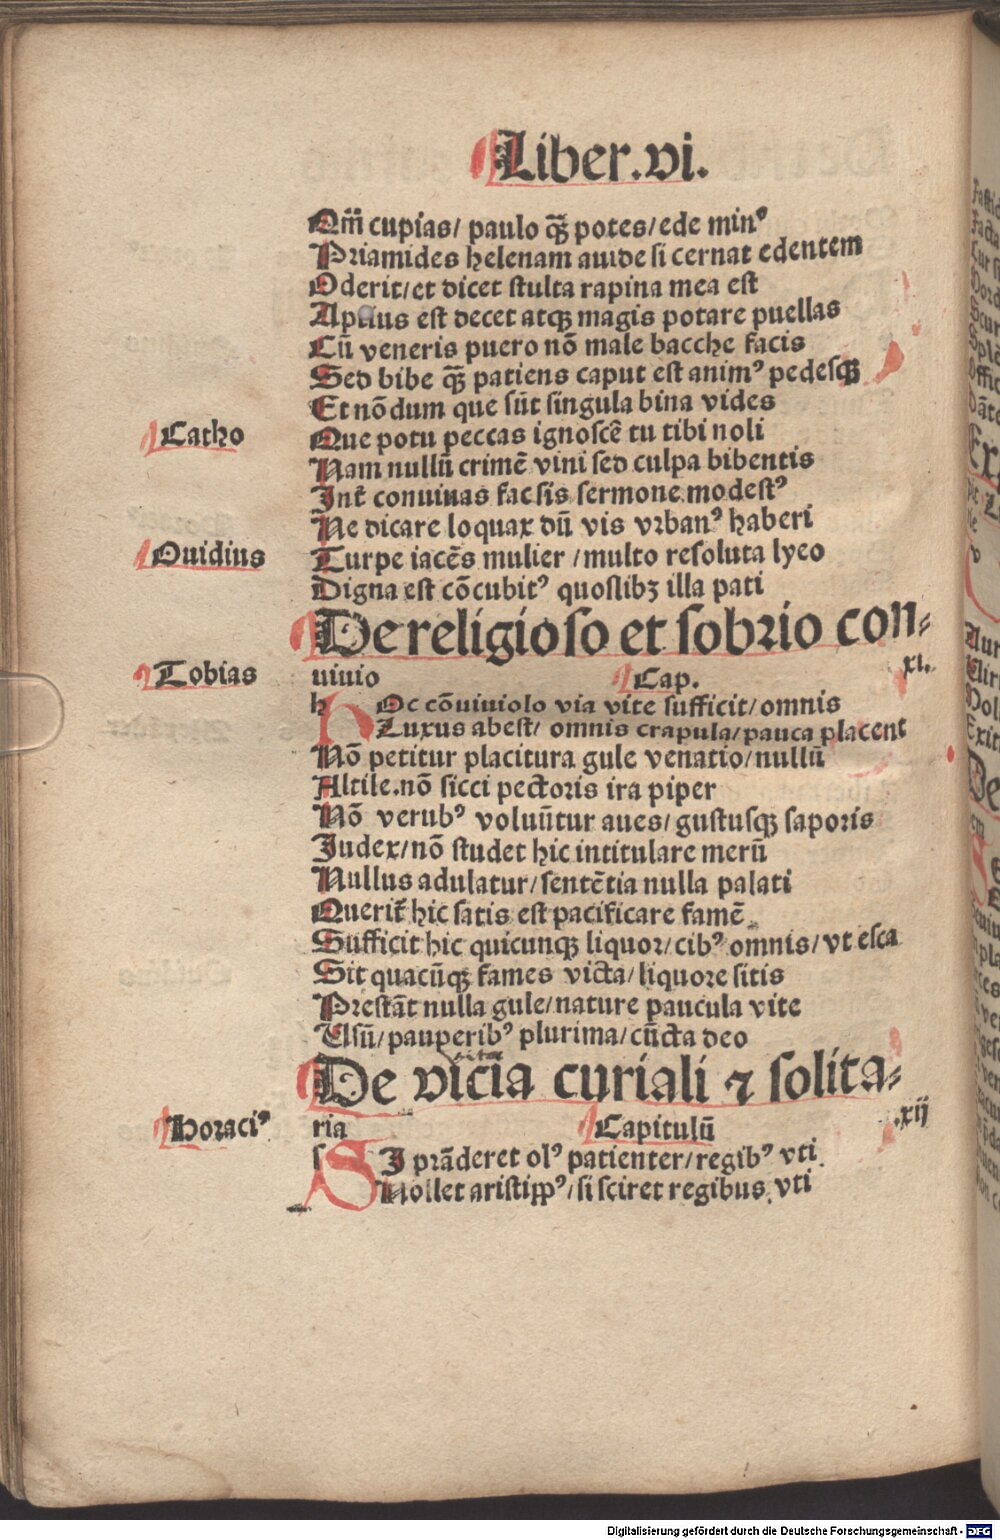 Liber.vi.
Qm̄ cupias/ paulo qꝫ̄ potes/ede minꝰ
Priamides helenam auide si cernat edentem
Oderit/et dicet stulta rapina mea est
Aptius est decet atqꝫ magis potare puellas
Cū veneris puero nō male bacche facis
Sed bibe qꝫ̄ patiens caput est animꝰ pedesqꝫ
Et nōdum que sūt singula bina vides
Catho
Que potu peccas ignoscē tu tibi noli
Nam nullū crimē vini sed culpa bibentis
Int̄ conuiuas fac sis sermone modestꝰ
Ne dicare loquax dū vis vrbanꝰ haberi
Ouidius
Turpe iacēs mulier /multo resoluta lyeo
Digna est cōcubitꝰ quoslibꝫ illa pati
De religioso et sobrio con⸗
Tobias
uiuio Cap. xi.
h Oc cōuiuiolo via vite sufficit/omnis
Luxus abest/ omnis crapula/pauca placent
Nō petitur placitura gule venatio/nullū
Altile.nō sicci pectoris ira piper
Nō verubꝰ voluūtur aues/gustusqꝫ saporis
Iudex/nō studet hic intitulare merū
Nullus adulatur/sentētia nulla palati
Querit̄ hic satis est pacificare famē
Sufficit hic quicunqꝫ liquor/cibꝰ omnis/vt esca
Sit quacūqꝫ fames victa/liquore sitis
Prestāt nulla gule/nature paucula vite
Usū/pauperibꝰ plurima/cūcta deo
De vicia curiali ⁊ solita⸗
Horaciꝰ
ria Capitulū .xij
s I prāderet olꝰ patienter/regibꝰ vti
Nollet aristippꝰ/si sciret regibus vti
Digitalisierung gefördert durch die Deutsche Forschungsgemeinschaft - DFG